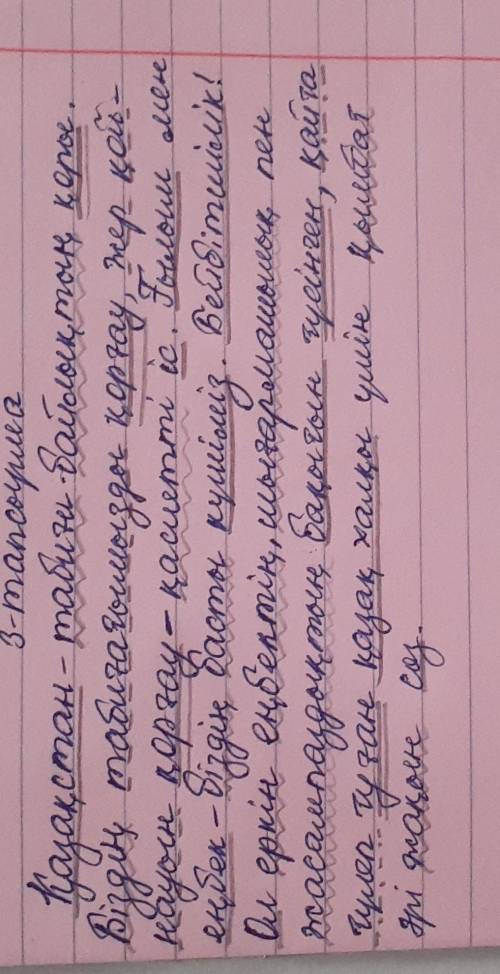 3-тапсырма
Қазақстан - табиғи байлықтың қоры.
Біздің табиғатымызды қорғау, жер қой-
науын қорғау - қасиетті іс. Ғылым мен
еңбек - біздің басты күшіміз. Бейбітшілік!
Ол еркін еңбектің, шығармашылық пен
жасампаздықтың бақытын түсінген, қайта
түлеп туған қазақ халқы үшін қымбат
әрі жақын сөз.